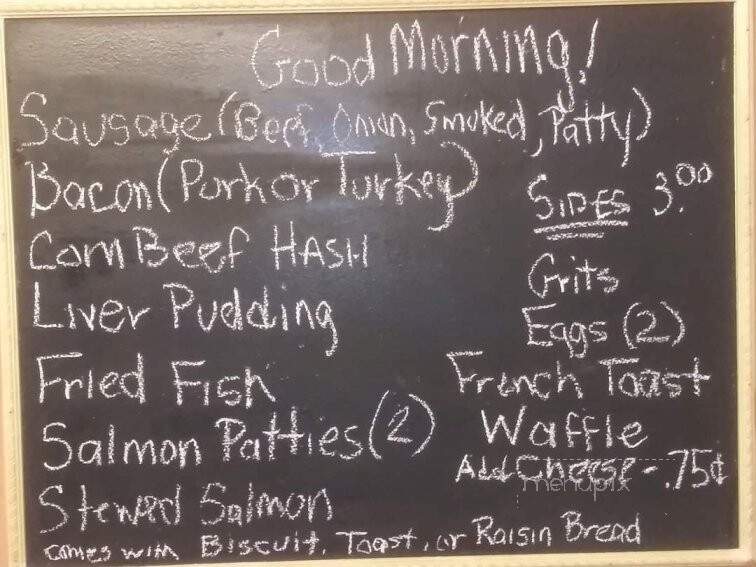 Good Morning!
Sausage (Beef, Onion, Smoked, Patty)
Bacon (Pork or Turkey)
Corn Beef HASH
Liver Pudding
Fried Fish
Salmon Patties (2)
Stewed Salmon
SIDES 3.00
Grits
Eggs (2)
French Toast
Waffle
Add Cheese - .75¢
menupix
comes with Biscuit, Toast, or Raisin Bread